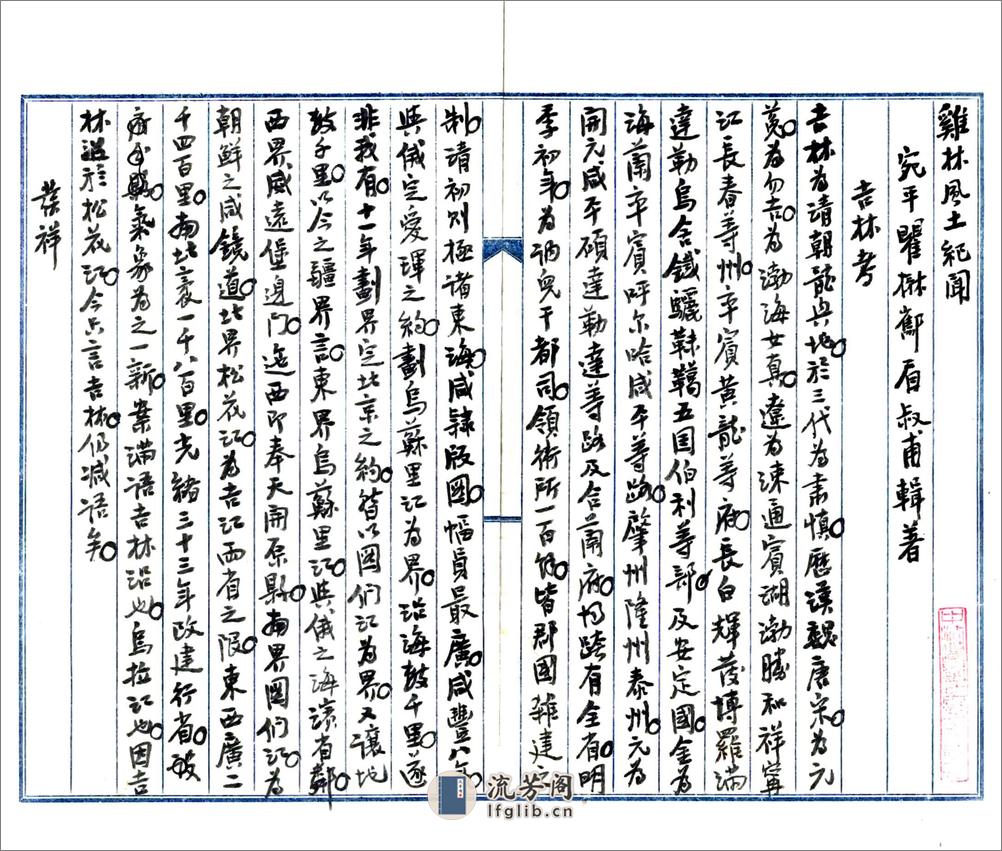 雞林風土紀聞
宛平瞿楙郬眉叔甫輯著
吉林考
吉林為清朝龍興地於三代為肅慎歷漢魏唐宋為元
菟為勿吉為渤海女真遼為涑通賓湖渤勝和祥寗
江長春等州平賓黃龍等府長白輝茷博羅滿
達勒烏舍鐵驪靺鞨五国伯利等部及安定國金為
海蘭率賓呼尔哈咸平等路肇州隆州泰州元為
開元咸平碩達勒達等路及合蘭府均跨有全省明
季初年為奴兒干都司領衛所一百餘皆郡國雜建
制清初則極諸東海咸隸版圖幅員最廣咸豐八年
與俄定愛琿之約劃烏蘇里江為界沿海數千里遂
非我有十一年劃界定北京之約皆以圖们江為界又讓地
數千里以今之疆界言東界烏蘇里江與俄之海濱省鄰
西界威遠堡邊门迤西即奉天開原縣南界圖们江為
朝鮮之咸鏡道北界松花江為吉江兩省之限東西廣二
千四百里南北袤一千八百里光緒三十三年改建行省
氣象為之一新案滿語吉林沿也烏拉江也因吉
林沿於松花江今只言吉林仍减语矣
發祥
流芳阁
lfglib.cn